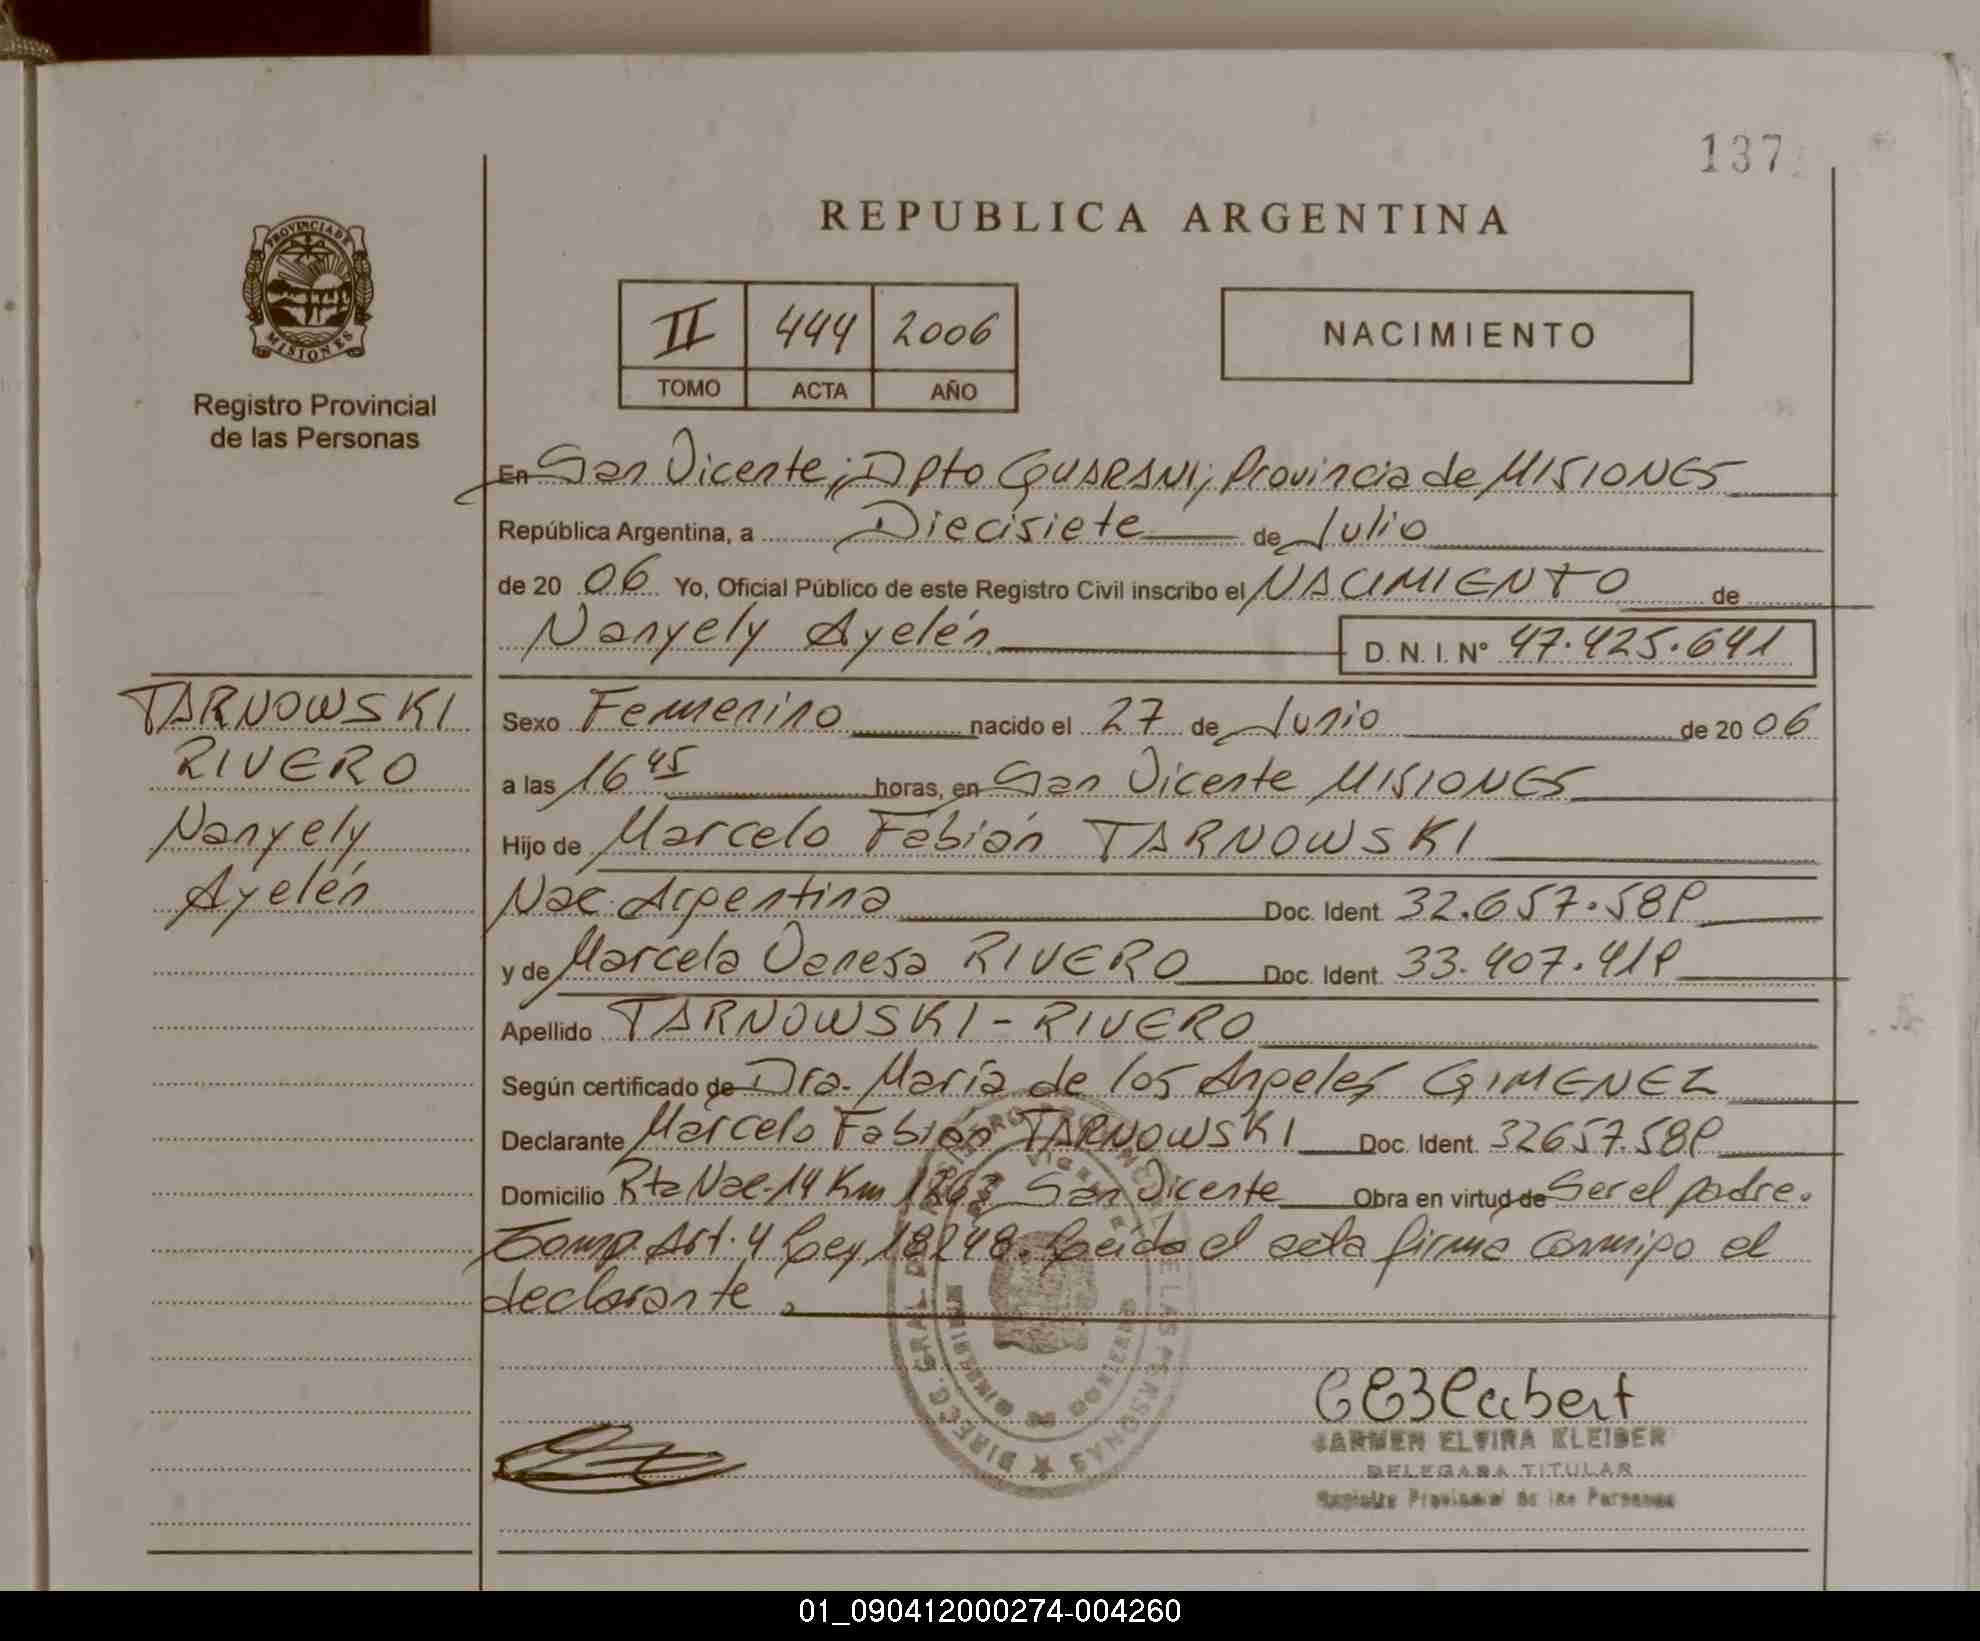 137
REPUBLICA ARGENTINA
PROVINCIA DE
MISIONES
Registro Provincial
de las Personas
II 444 2006
TOMO ACTA AÑO
NACIMIENTO
En San Vicente; Dpto GUARANI; Provincia de MISIONES
República Argentina, a Diecisiete de Julio
de 20 06 Yo, Oficial Público de este Registro Civil inscribo el NACIMIENTO de
Nanyely Ayelén D. N. I. N° 47.425.641
TARNOWSKI
RIVERO
Nanyely
Ayelén
Sexo Femenino nacido el 27 de Junio de 20 06
a las 16 45 horas, en San Vicente MISIONES
Hijo de Marcelo Fabián TARNOWSKI
Nac. Argentina Doc. Ident. 32.657.589
y de Marcela Vanesa RIVERO Doc. Ident. 33.407.419
Apellido TARNOWSKI - RIVERO
Según certificado de Dra. María de los Angeles GIMENEZ
Declarante Marcelo Fabián TARNOWSKI Doc. Ident. 32657.589
Domicilio Rta Nac. 14 Km 1263 San Vicente Obra en virtud de Ser el padre.
Comp. Art. 4 Ley 18248. Leida el acta firma conmigo el
declarante.
CARMEN ELVIRA KLEIBER
DELEGADA TITULAR
Registro Provincial de las Personas
01_090412000274-004260